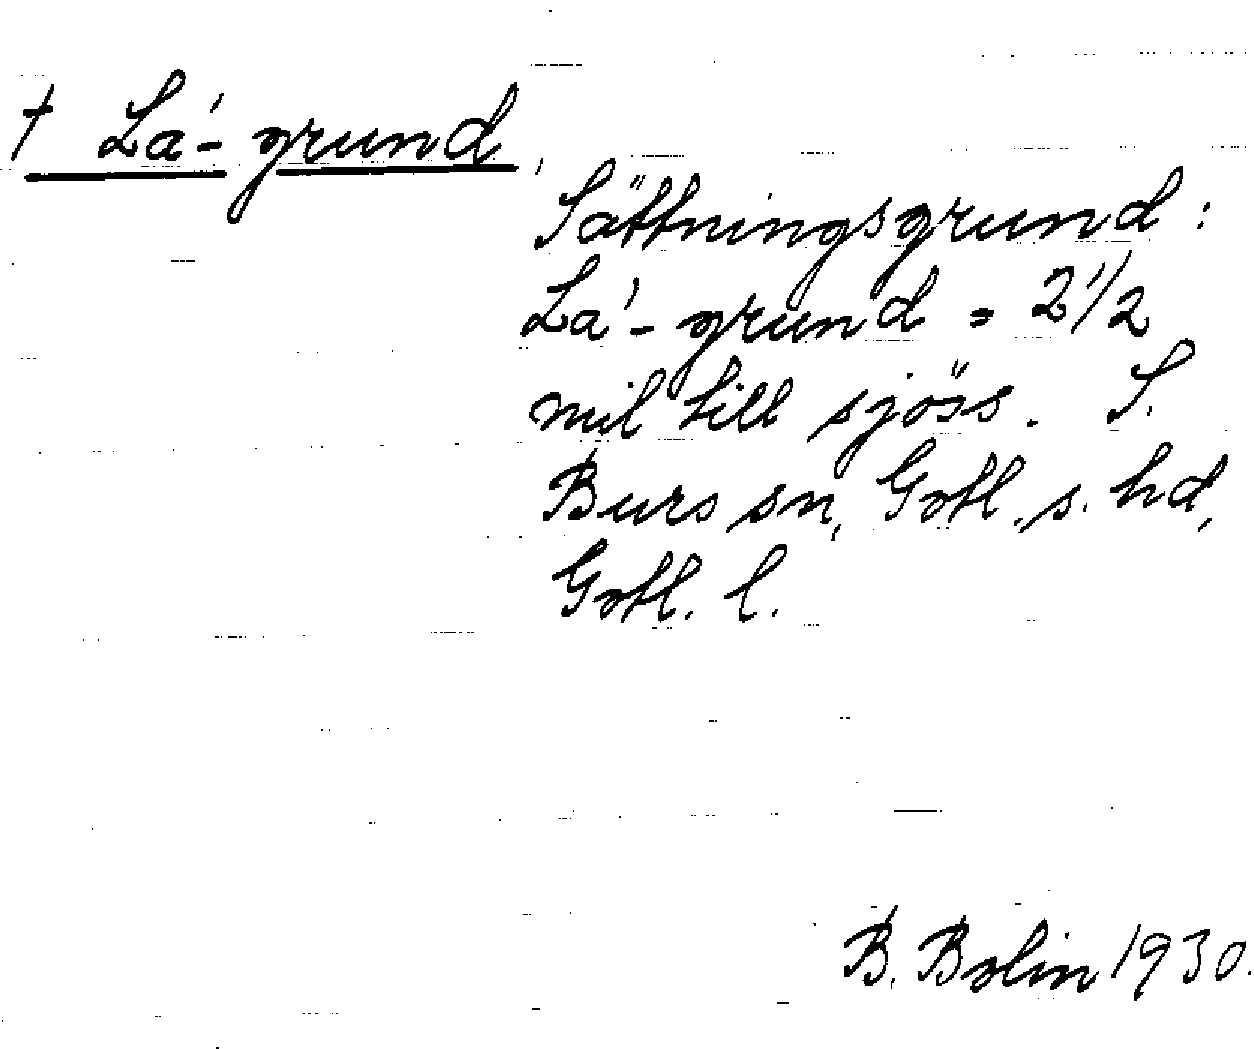 † Lá-grund,
Sättningsgrund:
Lá-grund = 2 1/2
mil till sjöss. S.
Burs sn, Gotl. s. hd,
Gotl. l.
B. Bolin 1930.